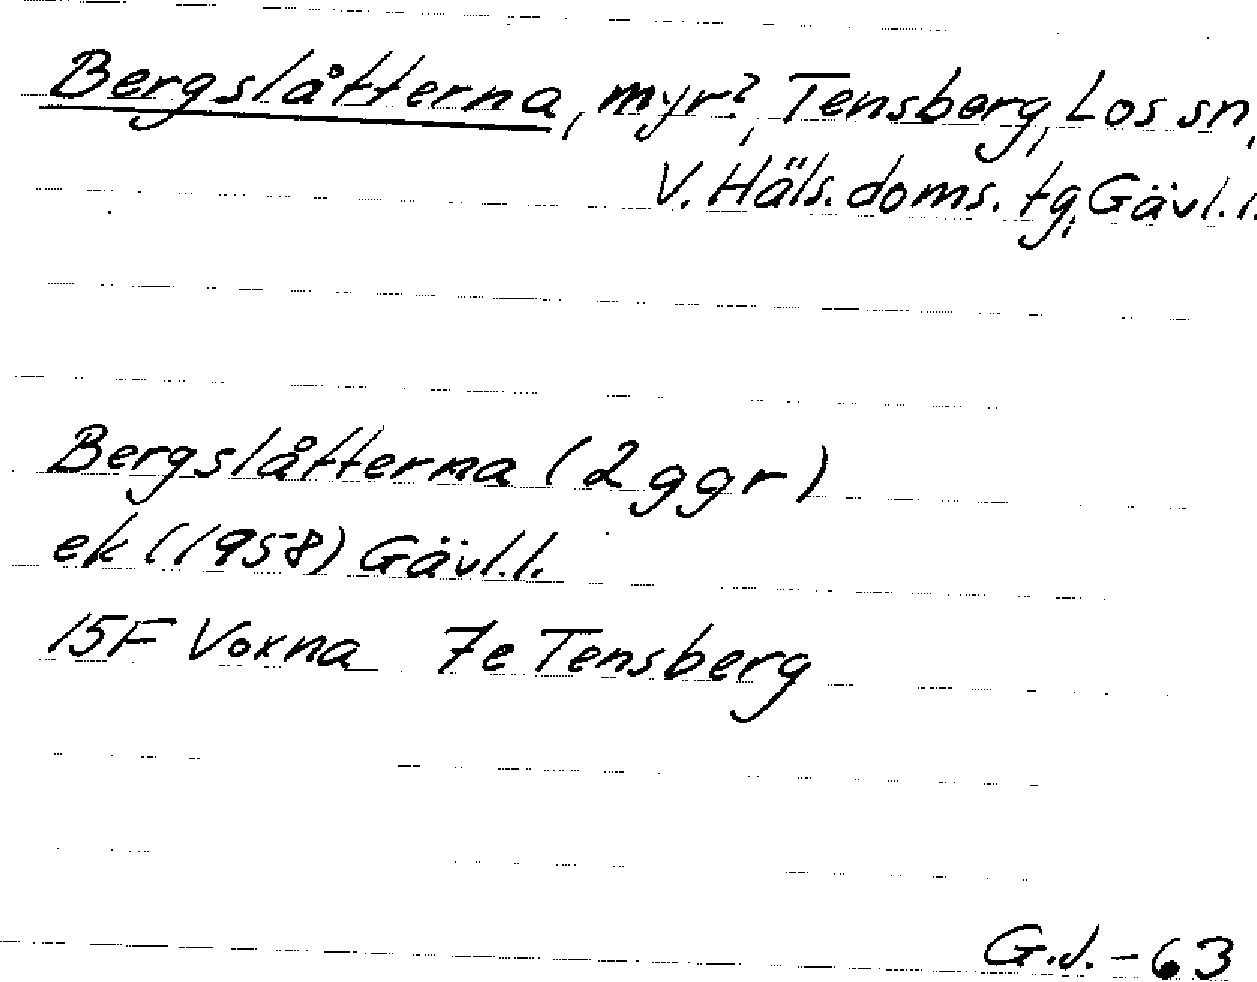 Bergslåtterna, myr?, Tensberg, Los sn,
V. Häls. doms. tg, Gävl. l.
Bergslåtterna (2 ggr)
ek (1958) Gävl. l.
15F Voxna 7e Tensberg
G.J. - 63